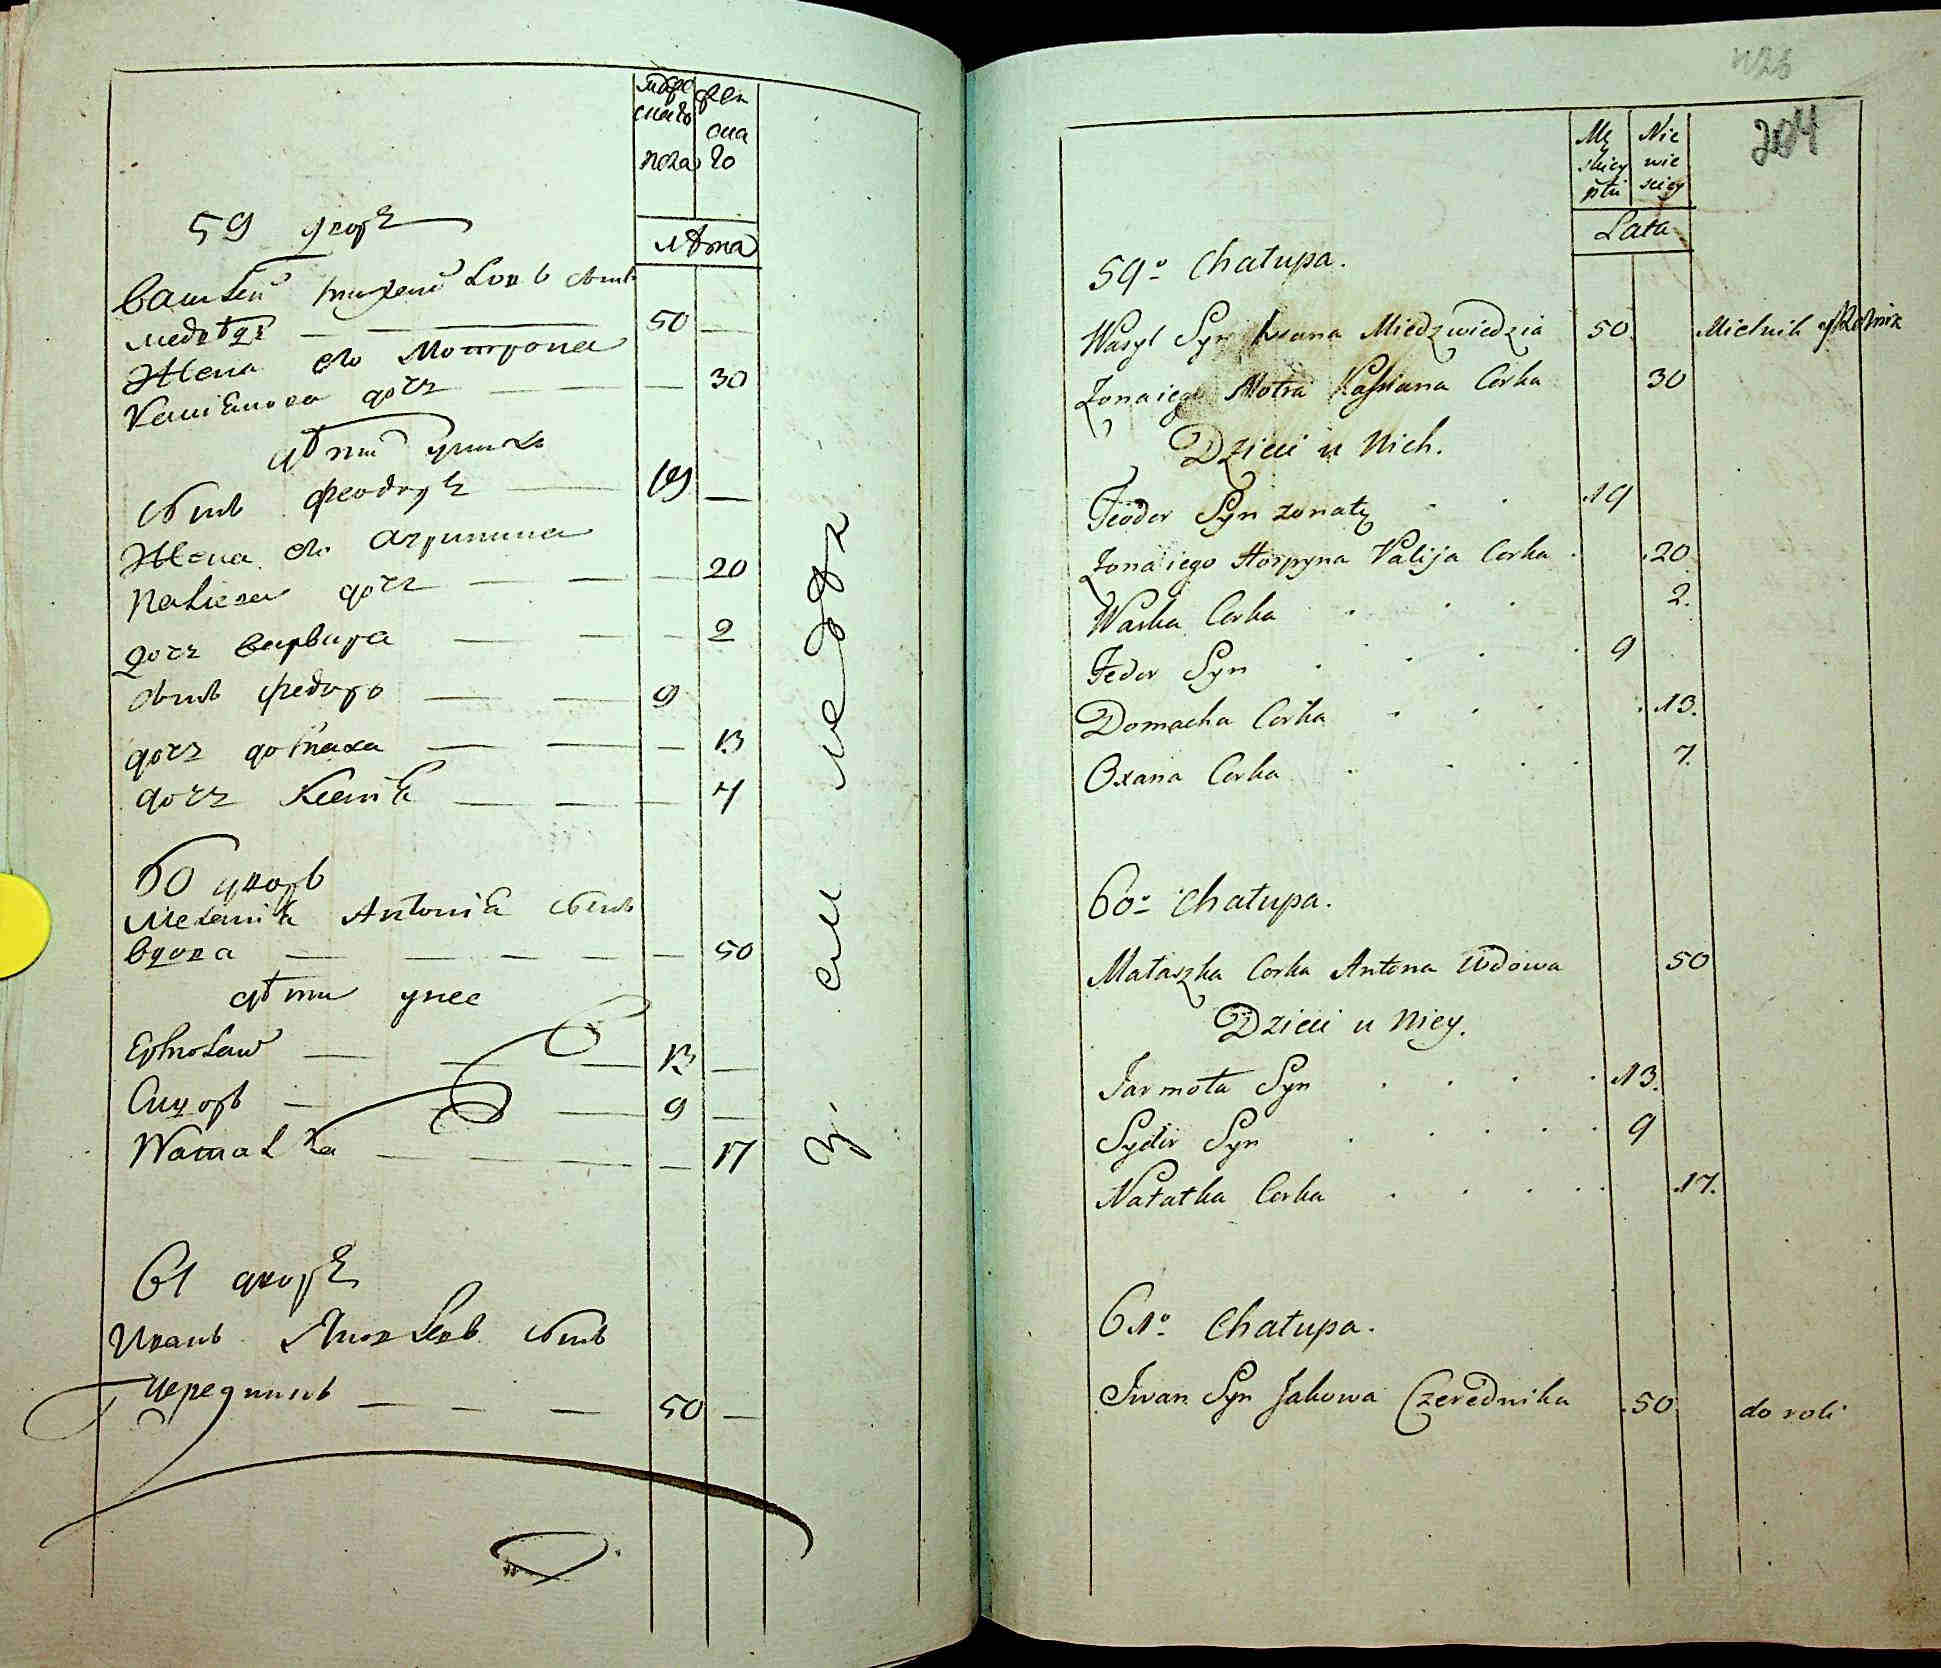 59 дворъ
медведь 50
Жена его Мотрона
Касианова дочь 30
дѣти у нихъ
сынъ Феодоръ 19
Жена его Агрипина
Палиева дочь 20
дочь Варвара 2
сынъ Федоръ 9
дочь домаха 13
дочь Ксения 7
60 дворъ
Мелания Антония
вдова 50
дѣти у нее
Ермолай 13
Сидоръ 9
Наталка 17
61 дворъ
Иванъ Яковлевъ сынъ
Чередникъ 50
лѣта
204
Mę skiey płci
Nie wie sciey
Lata
59o Chałupa.
Wasyl Syn Iwana Miedzwiedzia 50 Mielnik
Zona iego Motra Kassiana Corka 30
Dzieci u Nich.
Feodor Syn zonaty 19
Zona iego Horpyna Palija Corka 20
Warka Corka 2.
Fedor Syn 9
Domacha Corka 13.
Oxana Corka 7.
60o Chałupa.
Małaszka Corka Antona Wdowa 50
Dzieci u Niey.
Jarmoła Syn 13.
Sydir Syn 9
Natałka Corka 17.
61o Chałupa.
Iwan Syn Jakowa Czerednika 50 do roli